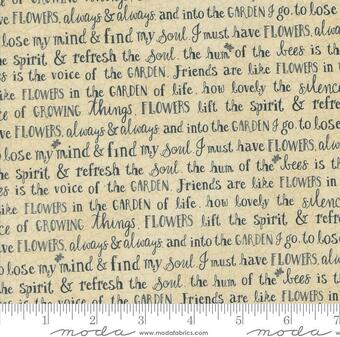 ce of GROWING things. FLOWERS lift the Spirit & refresh
ave FLOWERS, always & always and into the GARDEN I go, to lose
o lose my mind & find my Soul I must have FLOWERS, always
the spirit & refresh the Soul. the hum of the bees is the
es is the voice of the GARDEN. Friends are like FLOWERS in
ike FLOWERS in the GARDEN of life. how lovely the silence
ce of GROWING things. FLOWERS lift the Spirit & refre
ave FLOWERS, always & always and into the GARDEN I go, to los
o lose my mind & find my Soul I must have FLOWERS, al
s & refresh the Soul. the hum of the bees is th
es is the voice of the GARDEN. Friends are like FLOWERS in
ike FLOWERS in the GARDEN of life. how lovely the silen
ce of GROWING things. FLOWERS lift the Spirit & refre
ave FLOWERS, always & always and into the GARDEN I go, to lose
o lose my mind & find my Soul I must have FLOWERS, al
the spirit & refresh the Soul. the hum of the bees is th
es is the voice of the GARDEN. Friends are like FLOWERS in
1 2 3 4 5 6 7
moda www.modafabrics.com moda